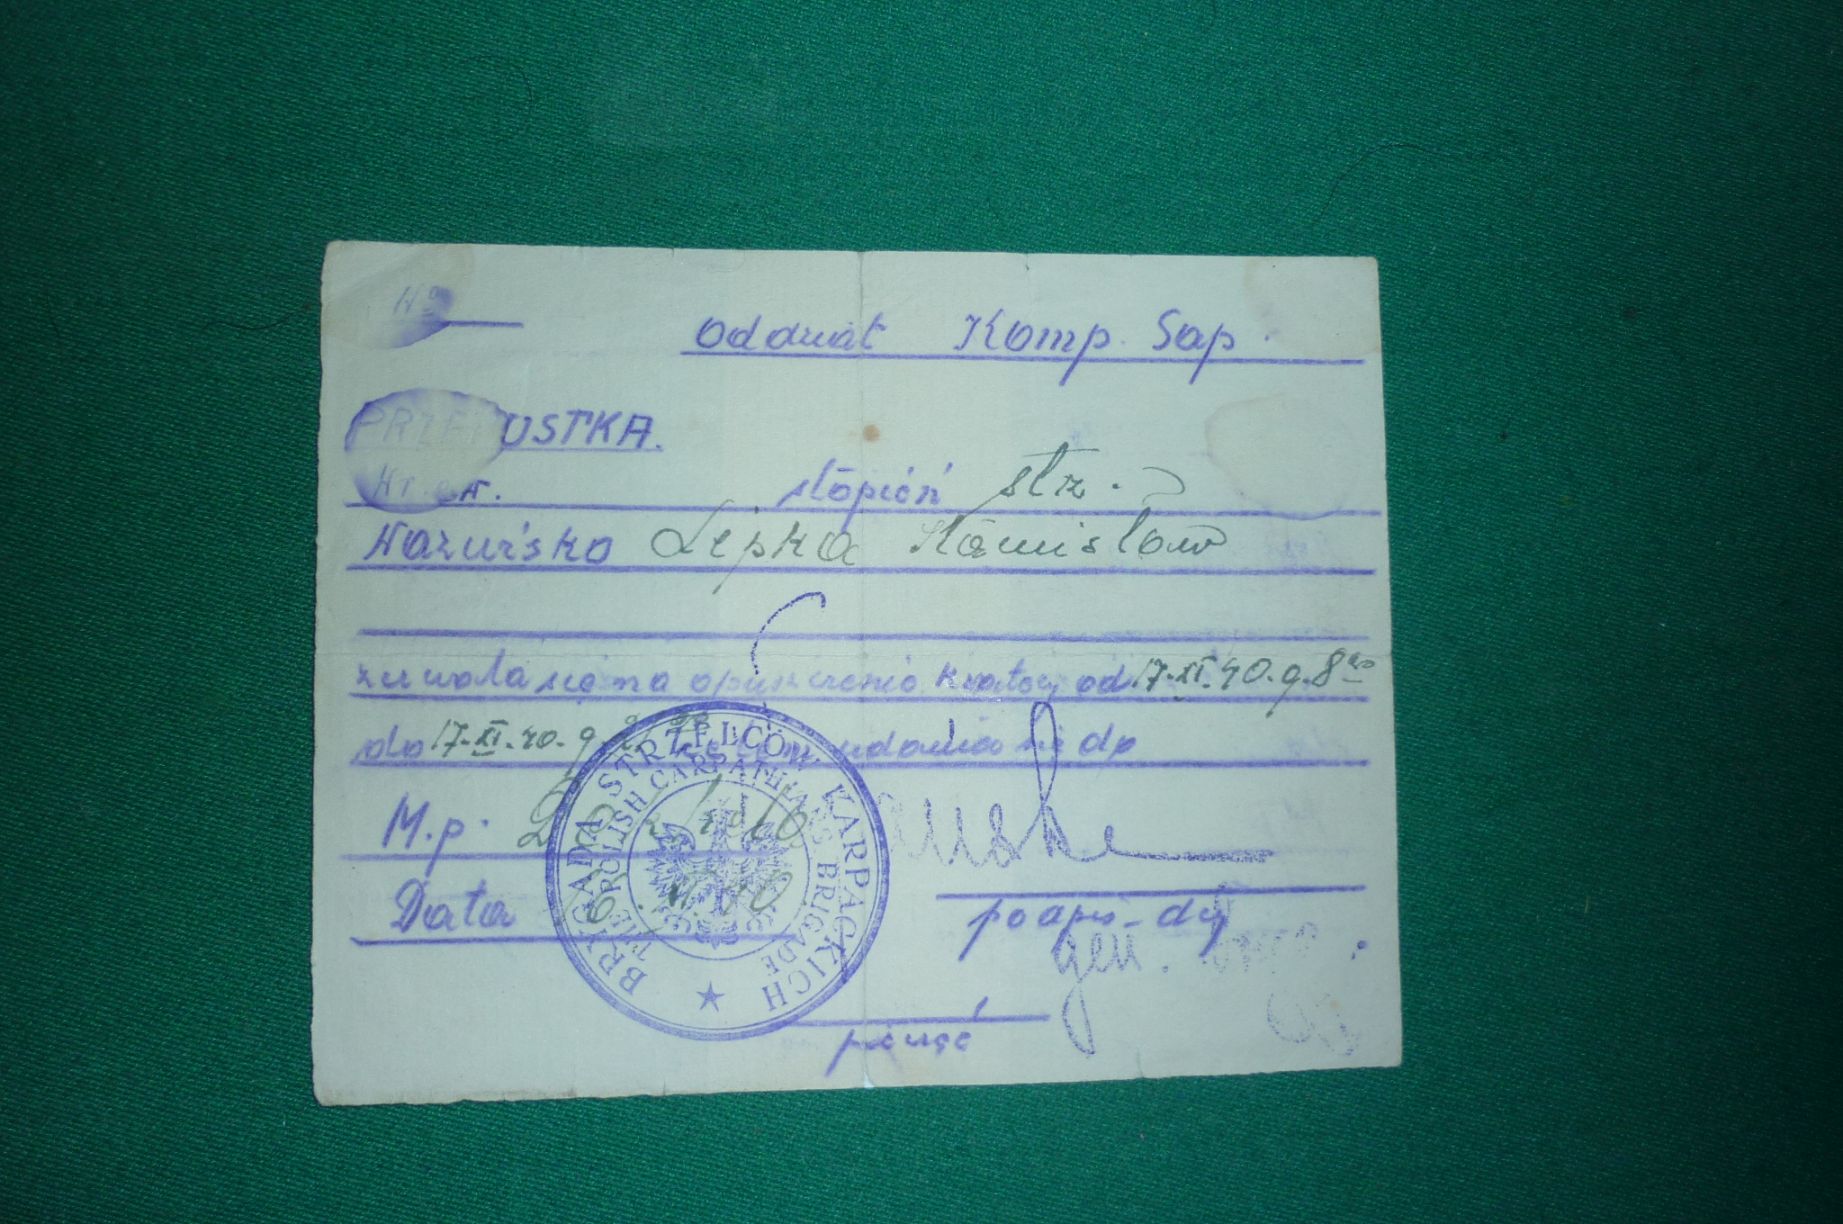 No
Oddział Komp. Sap.
PRZEPUSTKA.
Nr. ew. stopień str.
Nazwisko Lepka Stanisław
zezwala się na opuszczenie kwatery od 17.XI.40. g. 8ºº
do 17.XI.40. g. celem udania się do
M.p.
Data XI.40
podpis - dcy
pieczęć
BRYGADA STRZELCÓW KARPACKICH
THE POLISH CARPATHIANS BRIGADE